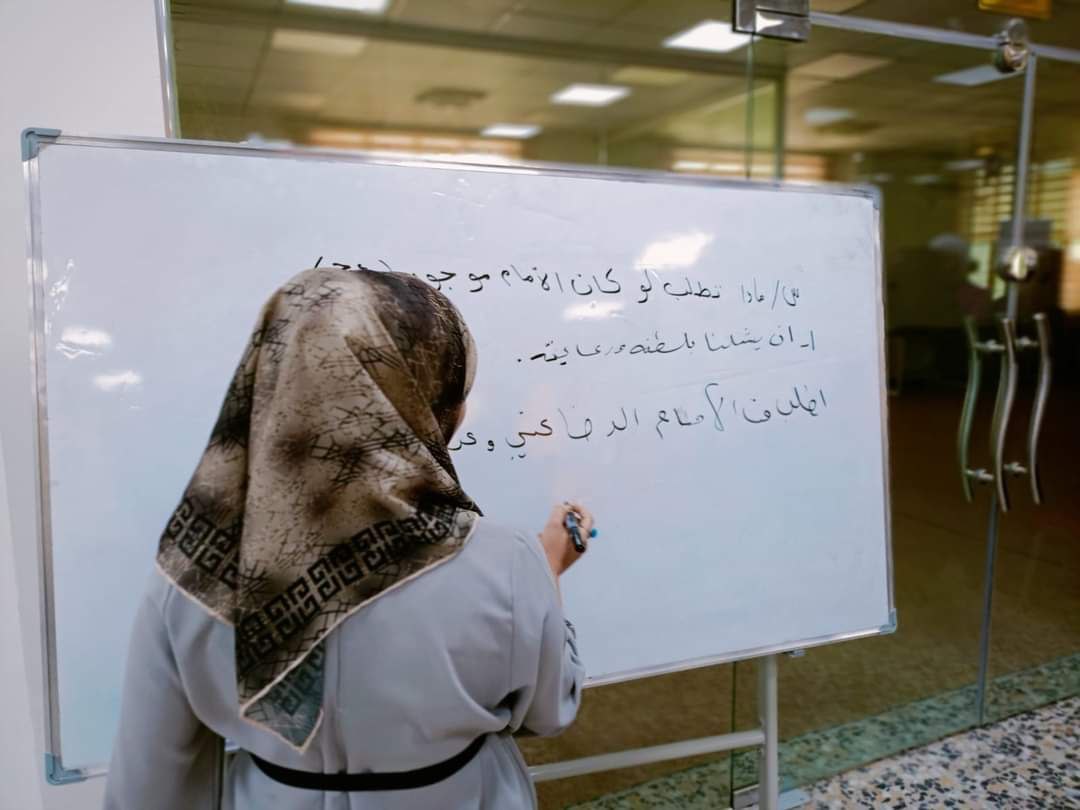 س/ ماذا تطلب لو كان الأمام موجود (عج)
١ـ ان يشملنا بلطفه ورعايته.
اطلب من الأمام الرضا عني وعن